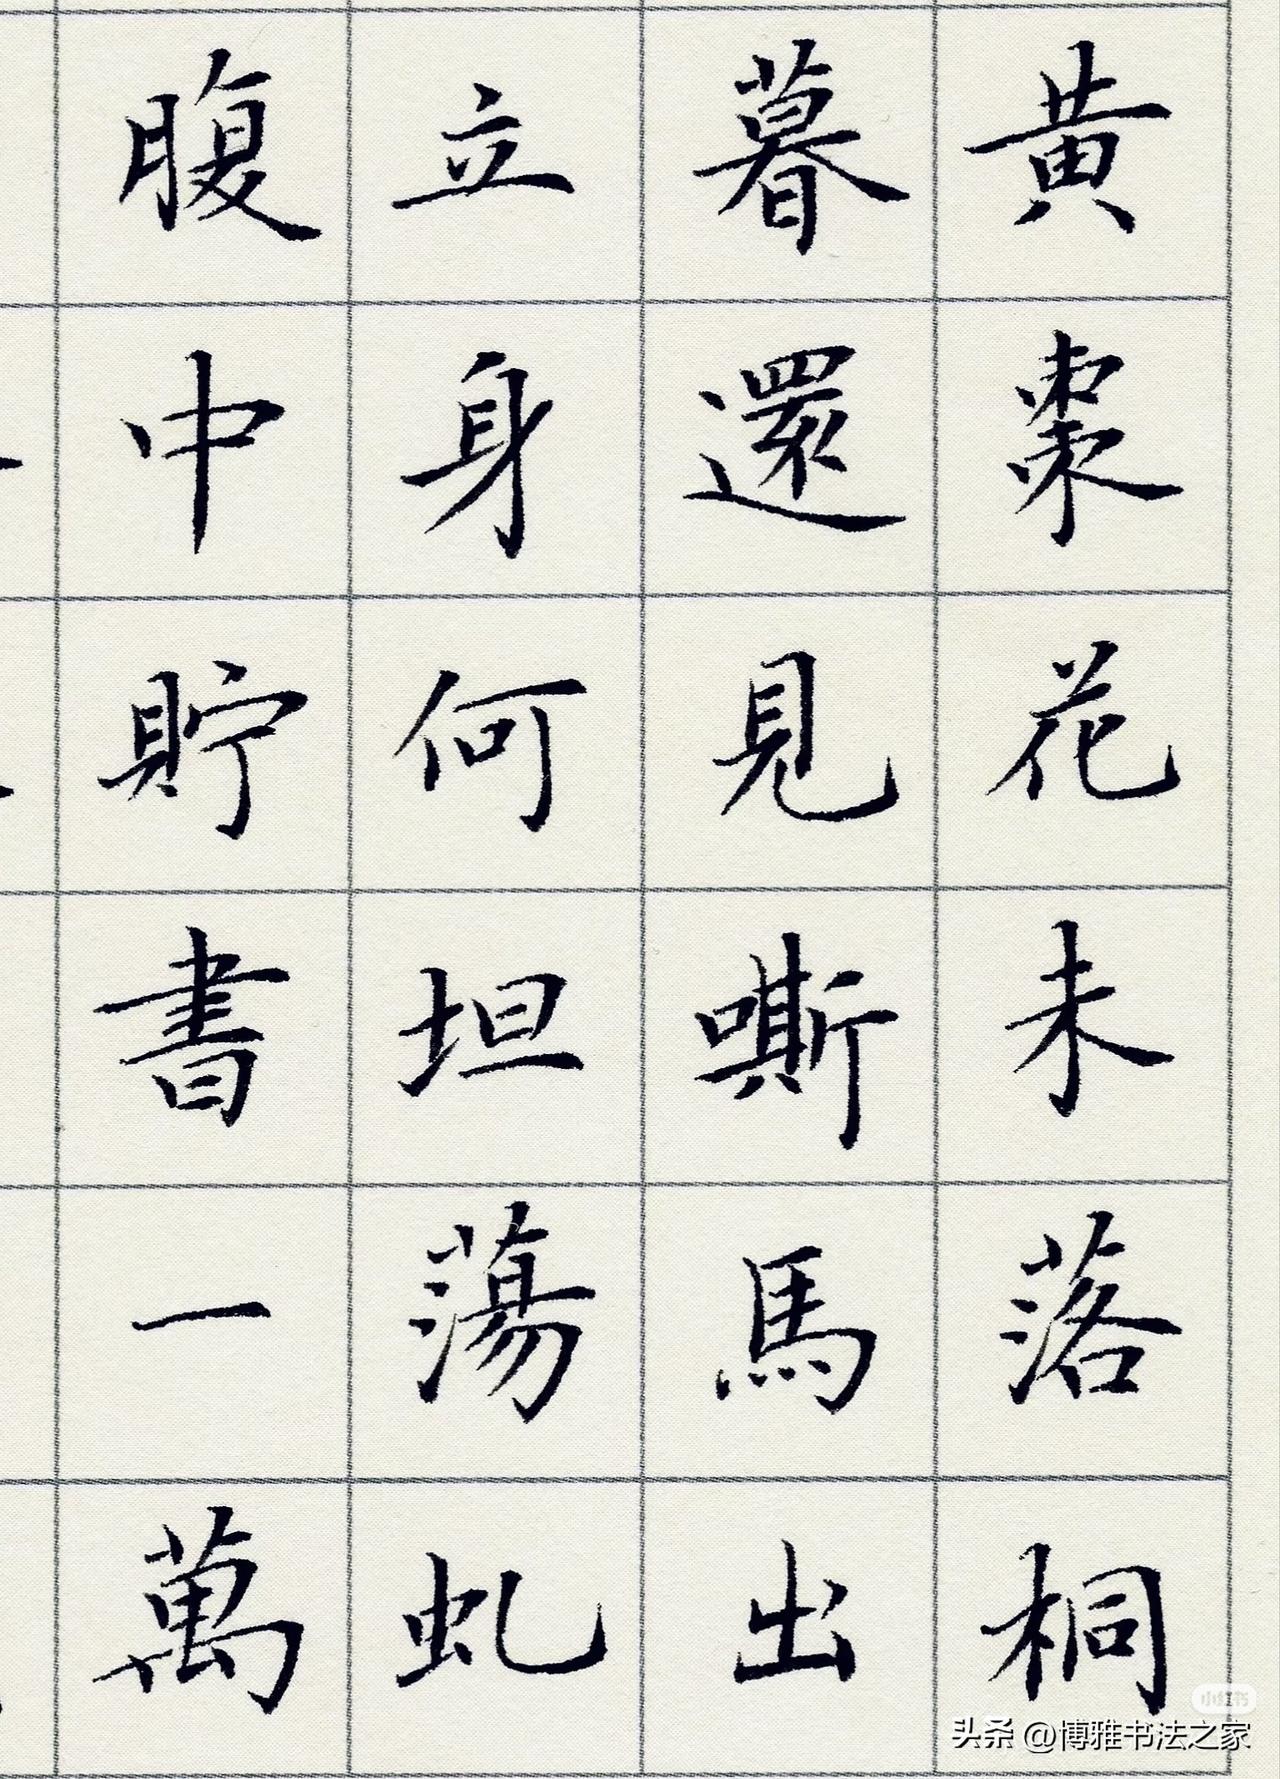 黄棗花未落桐
暮還見嘶馬出
立身何坦蕩虬
腹中貯書一萬
小红书
头条 @博雅书法之家